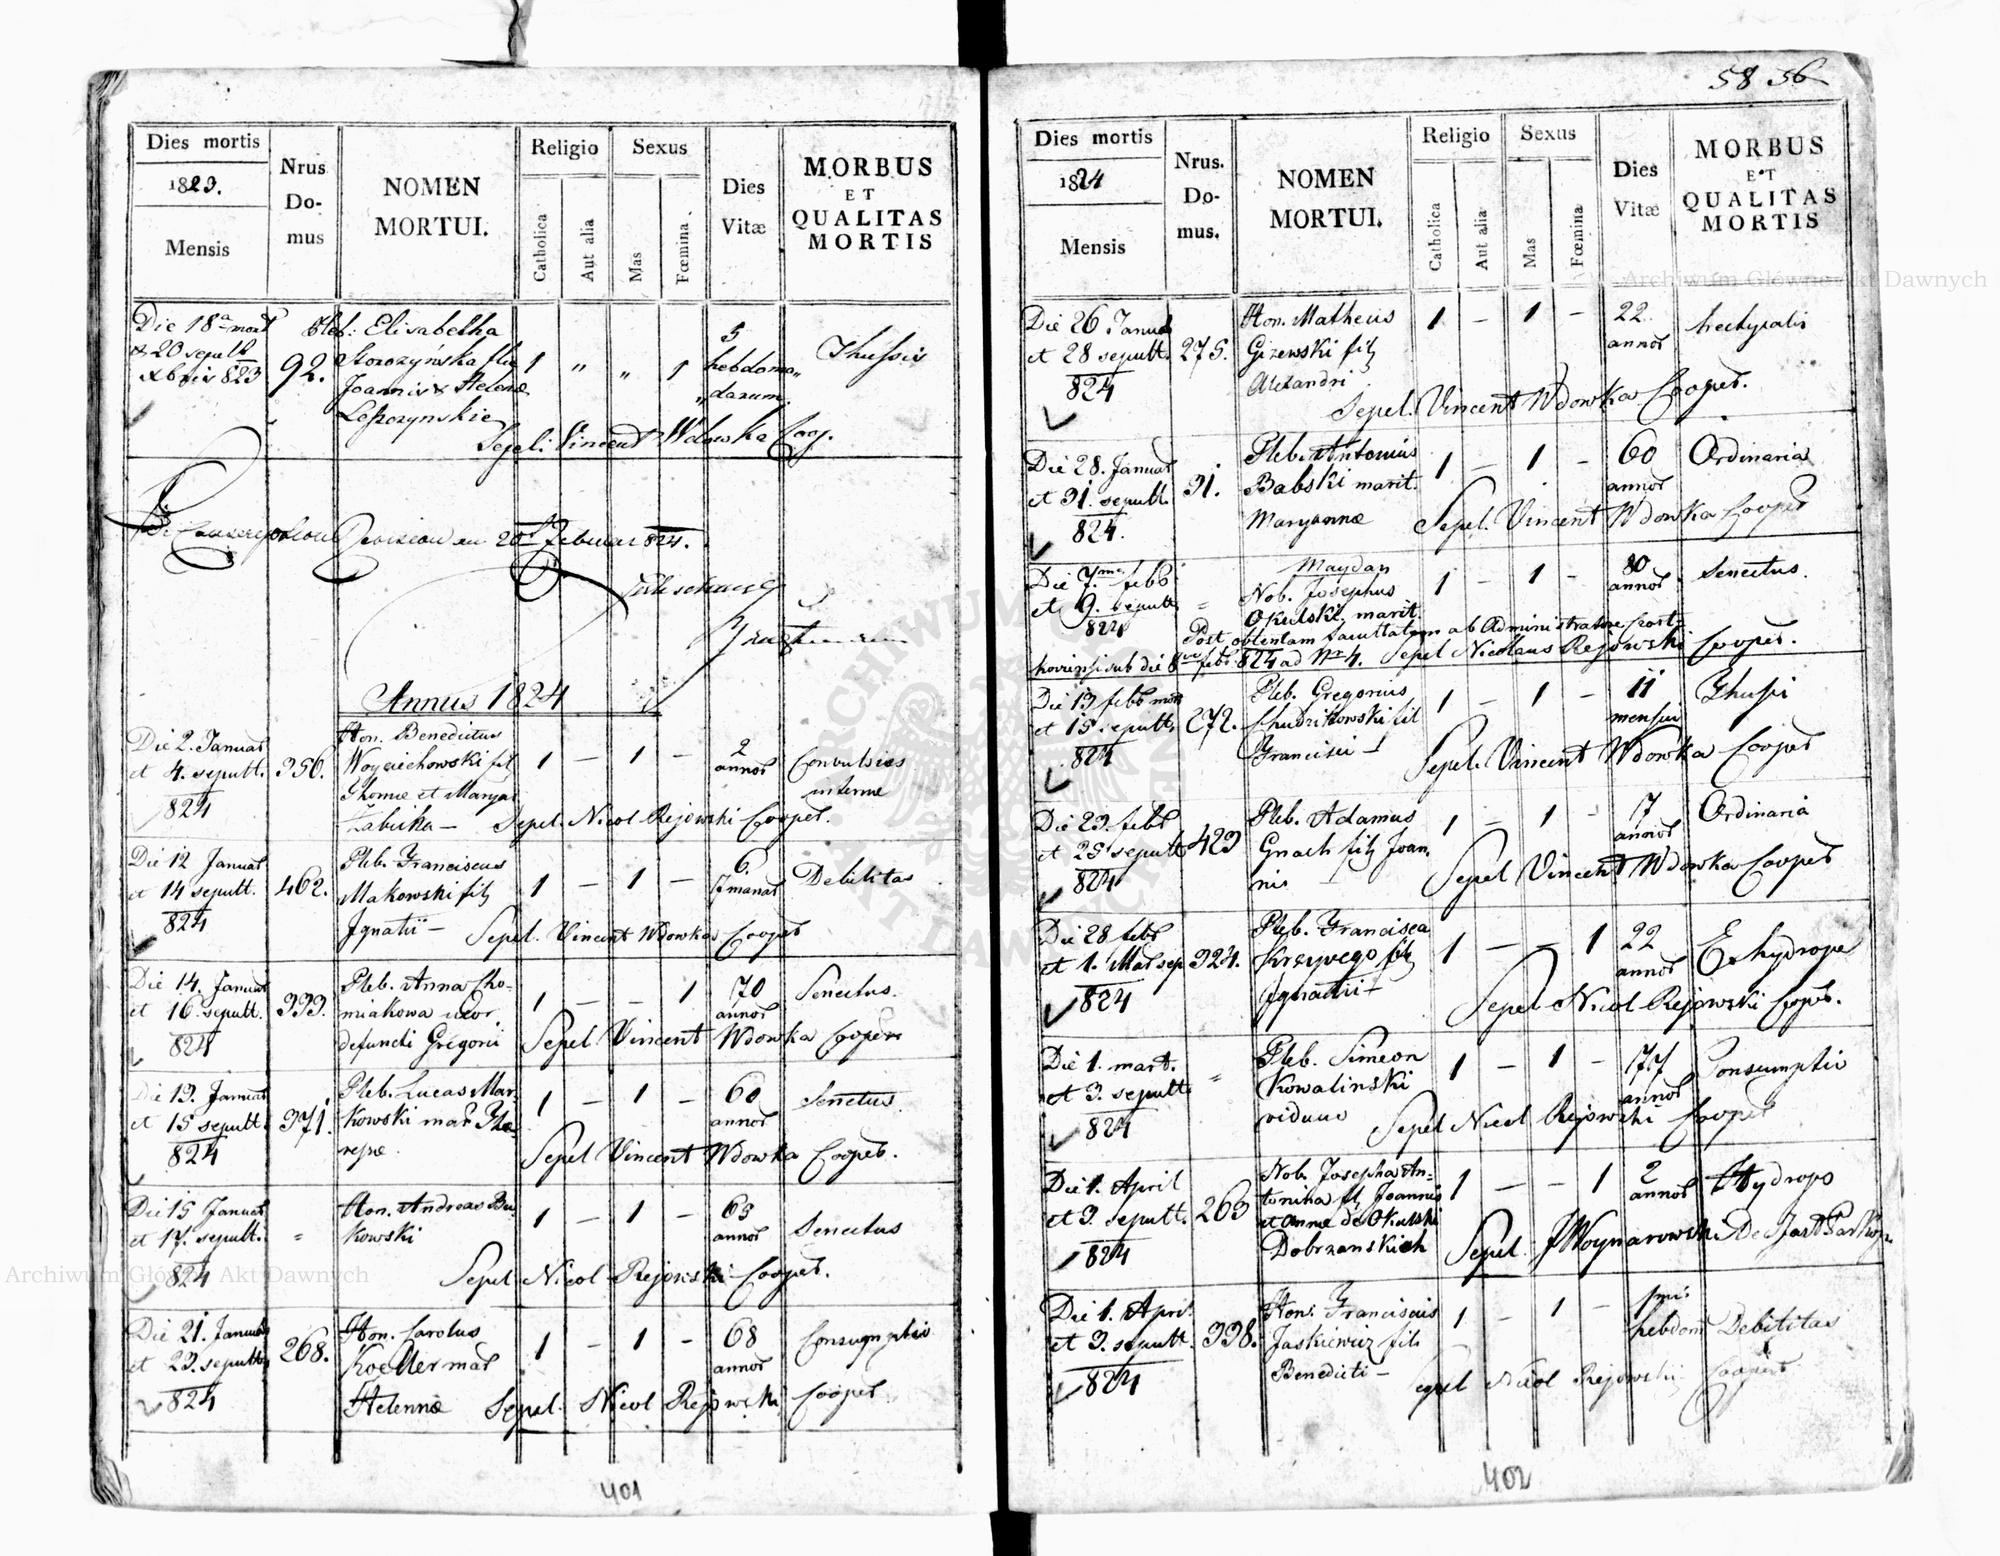 58 56
Dies mortis
1823.
Mensis
Nrus
Do-
mus
NOMEN
MORTUI.
Religio
Catholica
Aut alia
Sexus
Mas
Fœmina
Dies
Vitæ
MORBUS
ET
QUALITAS
MORTIS
Die 18ª mort
et 20 sepult
Xbris 823
92.
Pleb: Elisabetha
filia
Joannis et Helenæ
1 " " 1
5
hebdoma„
„darum
Thussis
Sepel: Vincent Wdowka Coop.
Revision am 20t Februar 824.
Annus 1824
Die 2. Januar
et 4. sepult.
824
350.
Hon. Benedictus
Woyciechowski fil
Thomæ et Maryan
Żabicka —
1 — 1 —
2
annor
Convulsies
internæ
Sepel. Nicol Rejowski Cooper.
Die 12 Januar
et 14 sepult.
824
462.
Pleb. Franciscus
Makowski filg
Ignatii —
1 — 1 —
6.
Debilitas
Sepel. Vincent Wdowka Cooper
Die 14. Januar
et 16. sepult.
824
333.
Pleb. Anna Cho-
miakowa uxor
defuncti Gregorii
1 — — 1
70
annor
Senectus.
Sepel Vincent Wdowka Cooper
Die 13. Januar
et 15 sepult.
824
371.
Pleb. Lucas Mar
kowski mar The-
resæ.
1 — 1 —
60
annor
Senectus.
Sepel Vincent Wdowka Cooper.
Die 15 Januar
et 17. sepult.
824
=
Hon. Andreas Bu-
kowski
1 — 1 —
65
annor
Senectus
Sepel Nicol Rejowski Cooper.
Die 21. Januar
et 23. sepult
824
268.
Hon. Carolus
Koeller mar
Helennæ
1 — 1 —
68
annor
Consumptio
Sepel. Nicol Rejowski Cooper
401
Dies mortis
1824
Mensis
Nrus.
Do-
mus.
NOMEN
MORTUI.
Religio
Catholica
Aut alia
Sexus
Mas
Fœmina
Dies
Vitæ
MORBUS
ET
QUALITAS
MORTIS
Die 26 Januar
et 28 sepult.
824
275.
Hon. Matheus
Gizewski filg
Alexandri
1 — 1 —
22
annor
Sepel. Vincent Wdowka Cooper.
Die 28. Januar
et 31. sepult.
824.
31.
Pleb. Antonius
Babski marit.
Maryannæ
1 — 1 —
60
annor
Ordinaria
Sepel. Vincent Wdowka Cooper
Die 7ma febr
et 9. sepult
824
=
Maydan
Nob. Josephus
Okulski, marit.
1 — 1 —
80
annor
Senectus.
Post obtentam facultatem ab Administratore
sub die 8va febr. 824 ad Nr 4. Sepel Nicolaus Rejowski Cooper.
Die 13 febr mor
et 15. sepult.
824
272.
Pleb. Gregorius
Chudzikowski fil
Francisci —
1 — 1 —
11
mensium
Thussi
Sepel. Vincent Wdowka Cooper
Die 23. febr
et 25 sepult
824
423
Pleb. Adamus
Gnach filg Joan,
nis —
1 — 1 —
17
annor
Ordinaria
Sepel Vincent Wdowka Cooper
Die 28 febr
et 1. Mar sep
824
324.
Pleb. Francisca
filg
Ignatii —
1 — — 1
22
annor
Ex hydrope
Sepel Nicol Rejowski Cooper.
Die 1. mart.
et 3. sepult
824
=
Pleb. Simeon
Kowalinski
viduus
1 — 1 —
77
annor
Consumptio
Sepel Nicol Rejowski Cooper
Die 1. April
et 3. sepult.
824
263
Nob. Josepha An-
tonina fil Joannis
et Annæ de Okulski
Dobrzanskich
1 — — 1
2
annor
Hydrops
Sepel. J Woynarowski
Die 1. April
et 3. sepult
824
338.
Hon: Franciscus
Jaskiewicz fili
Benedicti —
1 — 1 —
hebdom
Debilitas
Sepel Nicol Rejowski Cooper
402
Archiwum Główne Akt Dawnych
Archiwum Główne Akt Dawnych
ARCHIWUM GŁÓWNE AKT DAWNYCH